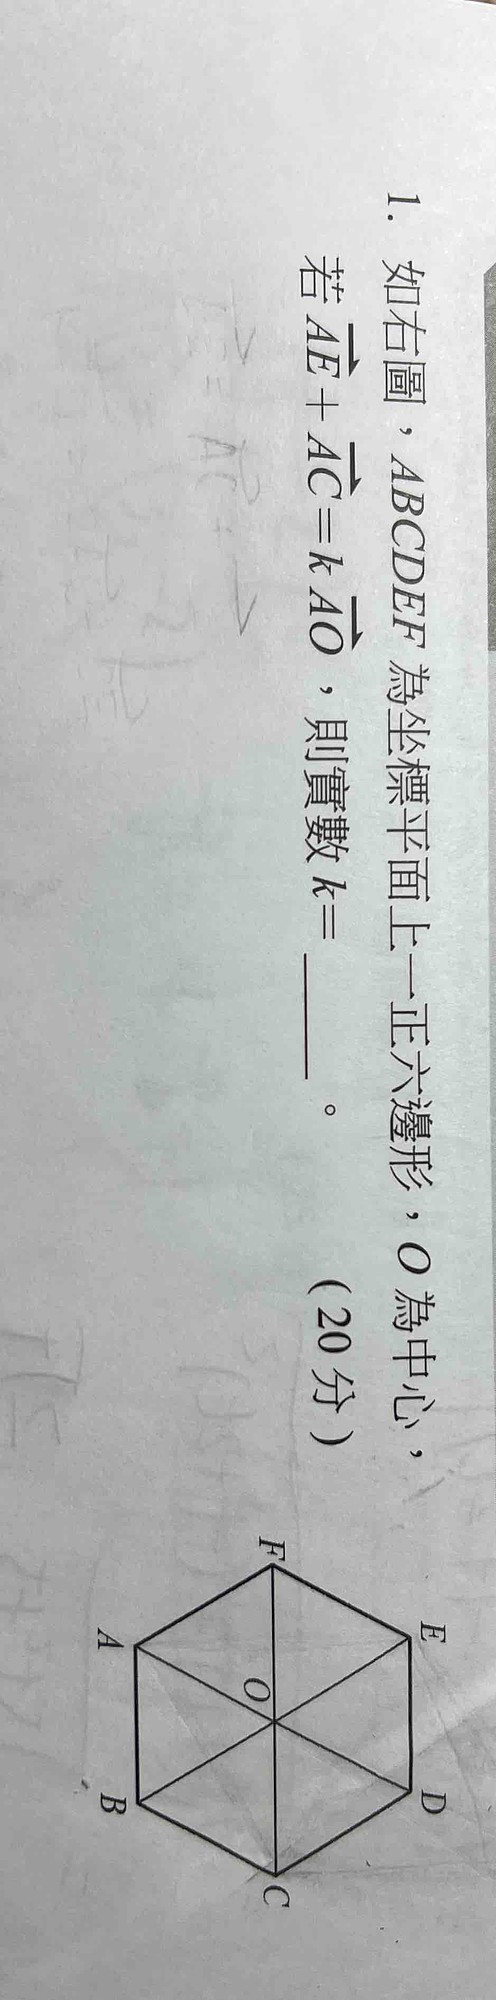 1. 如右圖，ABCDEF 為坐標平面上一正六邊形，O 為中心，
若 $\overrightarrow{AE}+\overrightarrow{AC}=k\overrightarrow{AO}$，則實數 k=______。 (20 分)
E
D
F
O
C
A
B